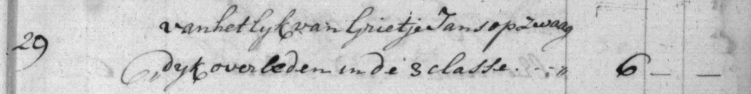 van het lyk van Grietje Jans op Zwaag
29
dyk overleden in de 3 classe . - „ 6 — —